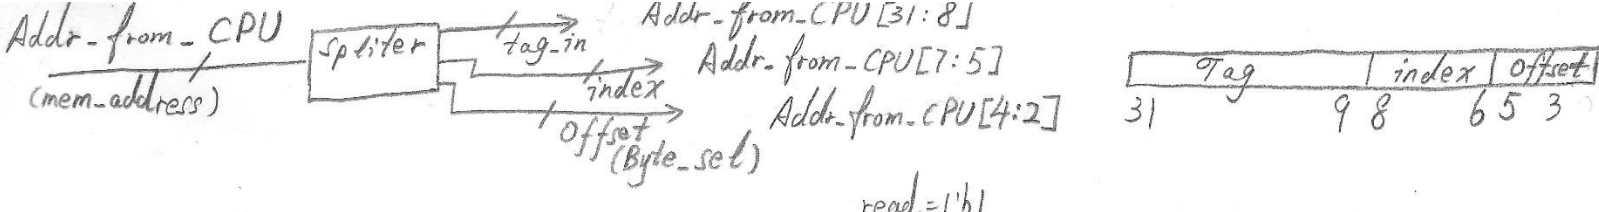 Addr_from_CPU
(mem_address)
spliter
tag_in
index
Offset
(Byte_sel)
Addr_from_CPU[31:8]
Addr_from_CPU[7:5]
Addr_from_CPU[4:2]
Tag index Offset
31 9 8 6 5 3
read=1'b1